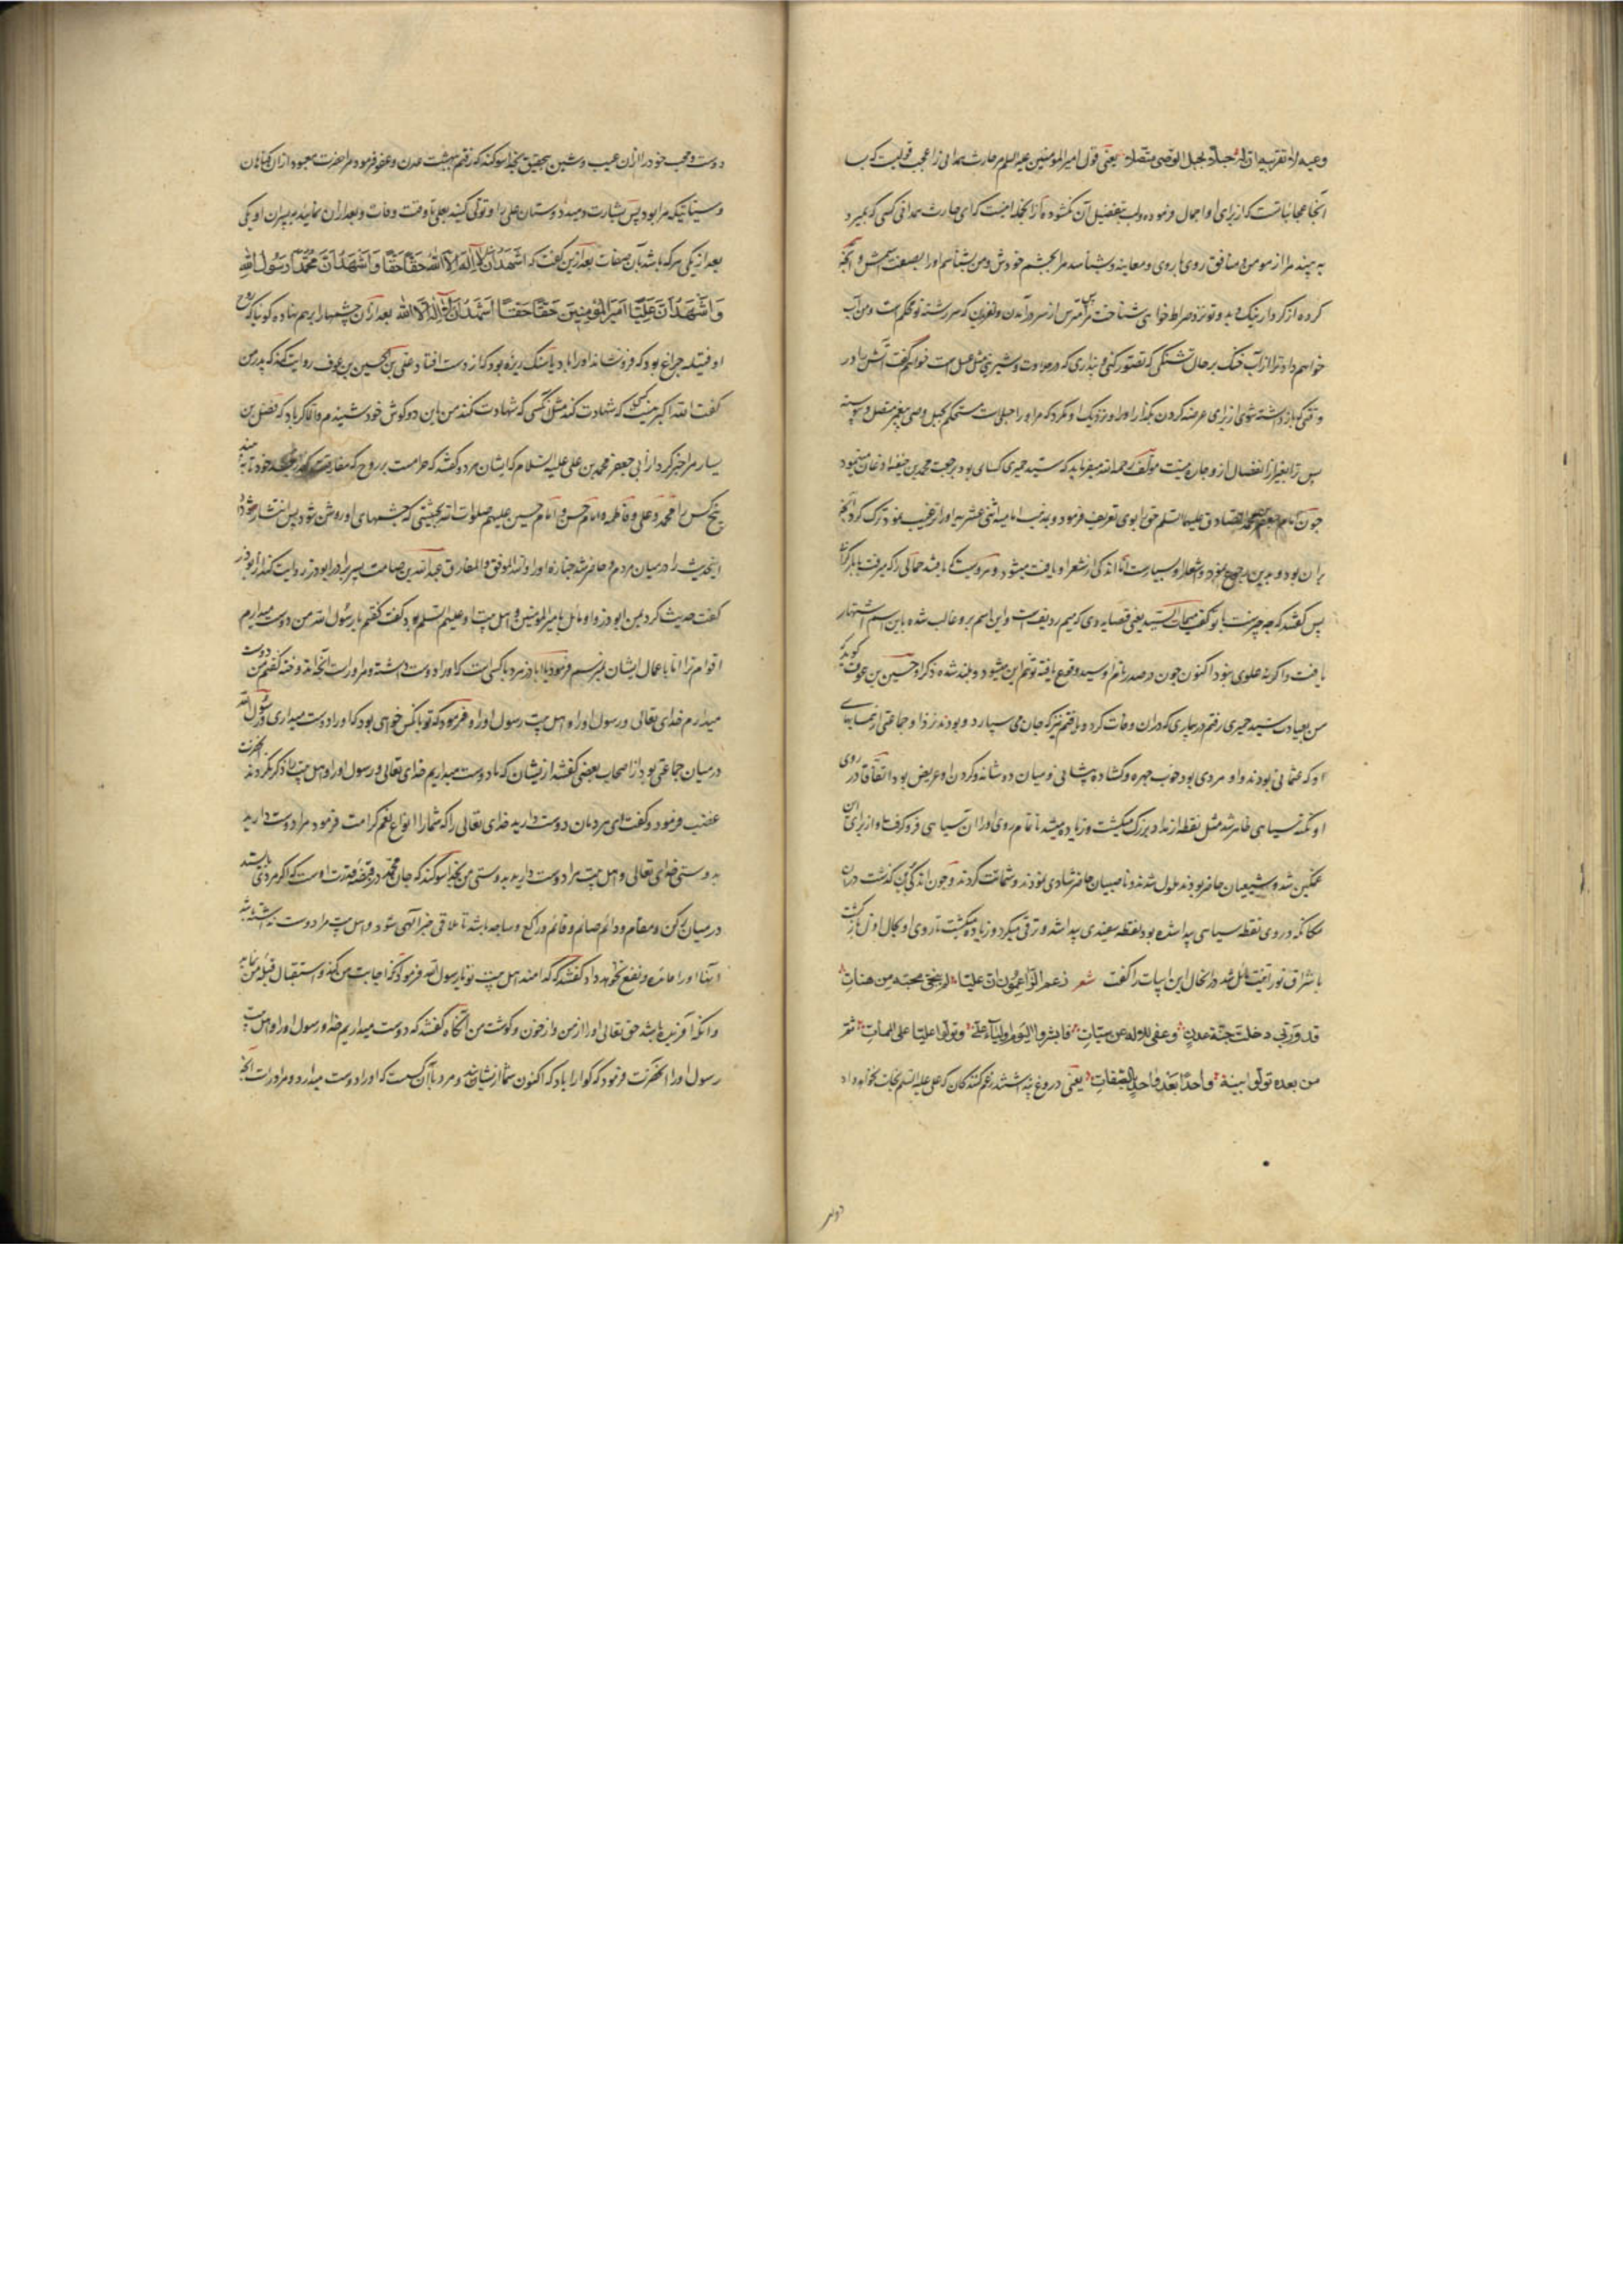 وعیه لا تقربیه ان له حبلا بحبل الوصی متصلا یعنی قول امیرالمؤمنین علیه السلم مر حارث همدانی را عجب قولیست که بسا
آنجا عجایباتست که از برای او اجمال فرموده و لب بتفضیل آن نکشوده که از آنجمله اینست که ای حارث همدانی کسی که بمیرد
به بیند مرا از مومن و منافق روی با روی و معاینه و بشناسد مرا بچشم خودش و من بشناسم اورا بصفت و اسمش و آنچه
کرده از کردار نیک و بد و تو نزد صراط خواهی شناخت مرا پس مترس از سر در آمدن و لغزیدن که سررشته تو محکم است و من آب
خواهم داد ترا از آب خنک بر حال تشنگی که تصور کنی و پنداری که در حلاوت و شیرینی مثل عسل است خواهم گفت آتش را در
وقتی که بازداشته شوی از برای عرضه کردن بگذار اورا و نزدیک او مگرد که مر اورا حبلی است مستحکم بحبل وصی پیغمبر متصل و پیوسته
پس ترا بغیر از انفصال ازو چاره نیست مؤلف رحمه الله میفرماید که سید حمیری کیسانی بود برجعت محمد بن حنفیه اذعان مینمود
چون امام جعفر صادق علیه السلم حق را بوی تعریف فرمود و بمذهب امامیه اثنی عشریه اورا ترغیب نمود ترک کرد آنچه
بر آن بود و بدین رجوع نمود و شعار او بسیارست اما اندکی از شعر او یافت میشود و مرویست که یافتند حمالی را که میرفت با بار گران
پس گفتند که چه چیزست با تو گفت میمات السید یعنی قصاید وی که میم ردیفست و این اسم برو غالب شده باین اسم اشتهار
یافت و اگر نه علوی نبود اکنون چون در صدر نام او سید وقوع یافته توهم این میشود و بلند شده ذکر او حسین بن عوف گوید که
من بعیادت سید حمیری رفتم در بیماری که در آن وفات کرد و یافتم نیز که جان می سپارد و بودند نزد او جماعتی از همسایهای
او که عثمانی بودند و او مردی بود خوب چهره و کشاده پیشانی و میان دو شانه و گردن او عریض بود اتفاقا در روی
او نکته سیاهی ظاهر شد مثل نقطه از مداد بزرک میگشت و زیاده میشد تا تمام روی اورا آن سیاهی فرو گرفت و از برای این
غمگین شد و شیعیان حاضر بودند ملول شدند و ناصبیان حاضر شادی نمودند و شماتت کردند و چون اندکی برین گذشت در آن
مکانکه در وی نقطه سیاهی پیدا شده بود نقطه سفیدی پیدا شد و ترقی میکرد و زیاده میگشت تا روی او بحال اول بازگشت
باشراق نورانیت مایل شد در آنحال این ابیات را گفت شعر زعم الزاعمون ان علیا لم ینجی محبه من هنات
قد و ربی دخلت جنة عدن وعفی لی الاله عن سیئات فابشروا الیوم اولیاء علی وتولوا علیا علی الممات ثم
من بعده تولوا بنیه واحدا بعد واحد بالصفات یعنی دروغ پنداشتند زعم کنندگان که علی علیه السلم نجات نخواهد داد
دوست
دوست و محب خود را از آن عیب و شین بتحقیق بخدا سوگند که رفتم ببهشت عدن و عفو فرمود مرا حضرت معبود از آن گناهان
و سیئاتیکه مرا بود پس بشارت و مید دوستان علی را و تولی کنید بعلی تا وقت وفات و بعد از آن نمائید به پسران او یکی
بعد از یکی هر که باشد بآن صفات بعد ازین گفت که اشهد ان لا اله الا الله حقا حقا و اشهد ان محمدا رسول الله
و اشهد ان علیا امیر المؤمنین حقا حقا اشهد ان لا اله الا الله بعد از آن چشمها را بر هم نهاد گویا که روح
او فتیله چراغ بود که فرو نشاند اورا باد یا سنک ریزه بود که از دست افتاد علی بن الحسین بن عوف روایت کند که پدر من
گفت الله اکبر نیست کسی که شهادت کند مثل کسی که شهادت نکند من باین دو گوش خود شنیدم و الا کر باد که فضل بن
یسار مرا خبر کرد از ابی جعفر محمد بن علی علیه السلام که ایشان هر دو گفتند که حرامست بر روح که مفارقت کند از جسد خود تا به بیند
پنج کس را محمد و علی و فاطمه و امام حسن و امام حسین علیهم صلوات الله بحیثیتی که چشمهای او روشن شود پس انتشار نمود
اینحدیث را در میان مردم و حاضر شد جنازه اورا والله الموفق والمفارق عبد الله بن صامت پسر برادر ابوذر روایت کند از ابوذر
گفت حدیث کرد بمن ابوذر و او مایل بامیرالمؤمنین و اهل بیت او علیهم السلم بود گفت گفتم یا رسول الله من دوست میدارم
اقوام را اما باعمال ایشان نمیرسم فرمود یا اباذر مرد با کسی است که اورا دوست داشته و مر اوراست آنچه اندوخته گفتم من دوست
میدارم خدای تعالی و رسول اورا و اهل بیت رسول اورا و فرمود که تو با کسی خواهی بود که اورا دوست میداری و رسول الله
در میان جماعتی بود از اصحاب بعضی گفتند از ایشان که ما دوست میداریم خدای تعالی و رسول اورا و اهل بیت را ذکر نکردند آنحضرت
غضب فرمود و گفت ای مردمان دوست دارید خدای تعالی را که شما را بانواع نعم کرامت فرمود مرا دوست دارید
بدوستی خدای تعالی و اهل بیت مرا دوست دارید بدوستی من بخدا سوگند که جان محمد در قبضه قدرت اوست که اگر مردی باشد
در میان رکن و مقام و دائم صائم و قائم و راکع و ساجد باشد تا ملاقی خبر الهی شود و اهل بیت مرا دوست نداشته باشد
آنها اورا فایده و نفع نخواهد داد گفتند که کدامند اهل بیت تو یا رسول الله فرمود که آنکه اجابت من کند و استقبال قبله من نماید
و آنکه آفریده باشد حق تعالی اورا از من و از خون و گوشت من آنگاه گفتند که دوست میداریم خدا و رسول اورا و اهل بیت
رسول اورا آنحضرت فرمود که گوارا باد که اکنون شما از ایشانید و مرد با آن کسست که اورا دوست میدارد و مر اوراست آنچه